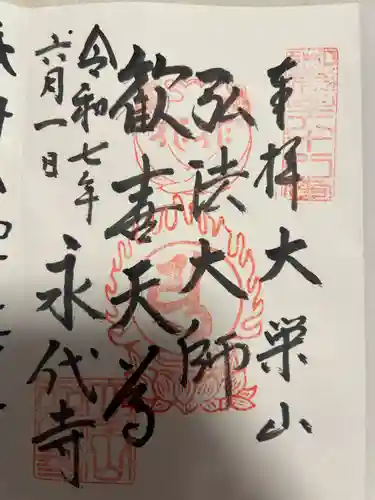 奉拝 大栄山
弘法大師
歓喜天尊
永代寺
令和七年
六月一日